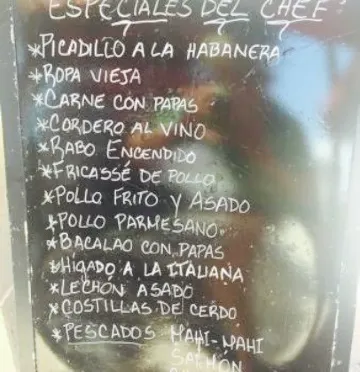 ESPECIALES DEL CHEF:
*PICADILLO A LA HABANERA
*ROPA VIEJA
*CARNE CON PAPAS
*CORDERO AL VINO
*RABO ENCENDIDO
*FRICASSÉ DE POLLO
*POLLO FRITO Y ASADO
*POLLO PARMESANO
*BACALAO CON PAPAS
*HÍGADO A LA ITALIANA
*LECHÓN ASADO
*COSTILLAS DE CERDO
*PESCADOS MAHI-MAHI
SALMÓN